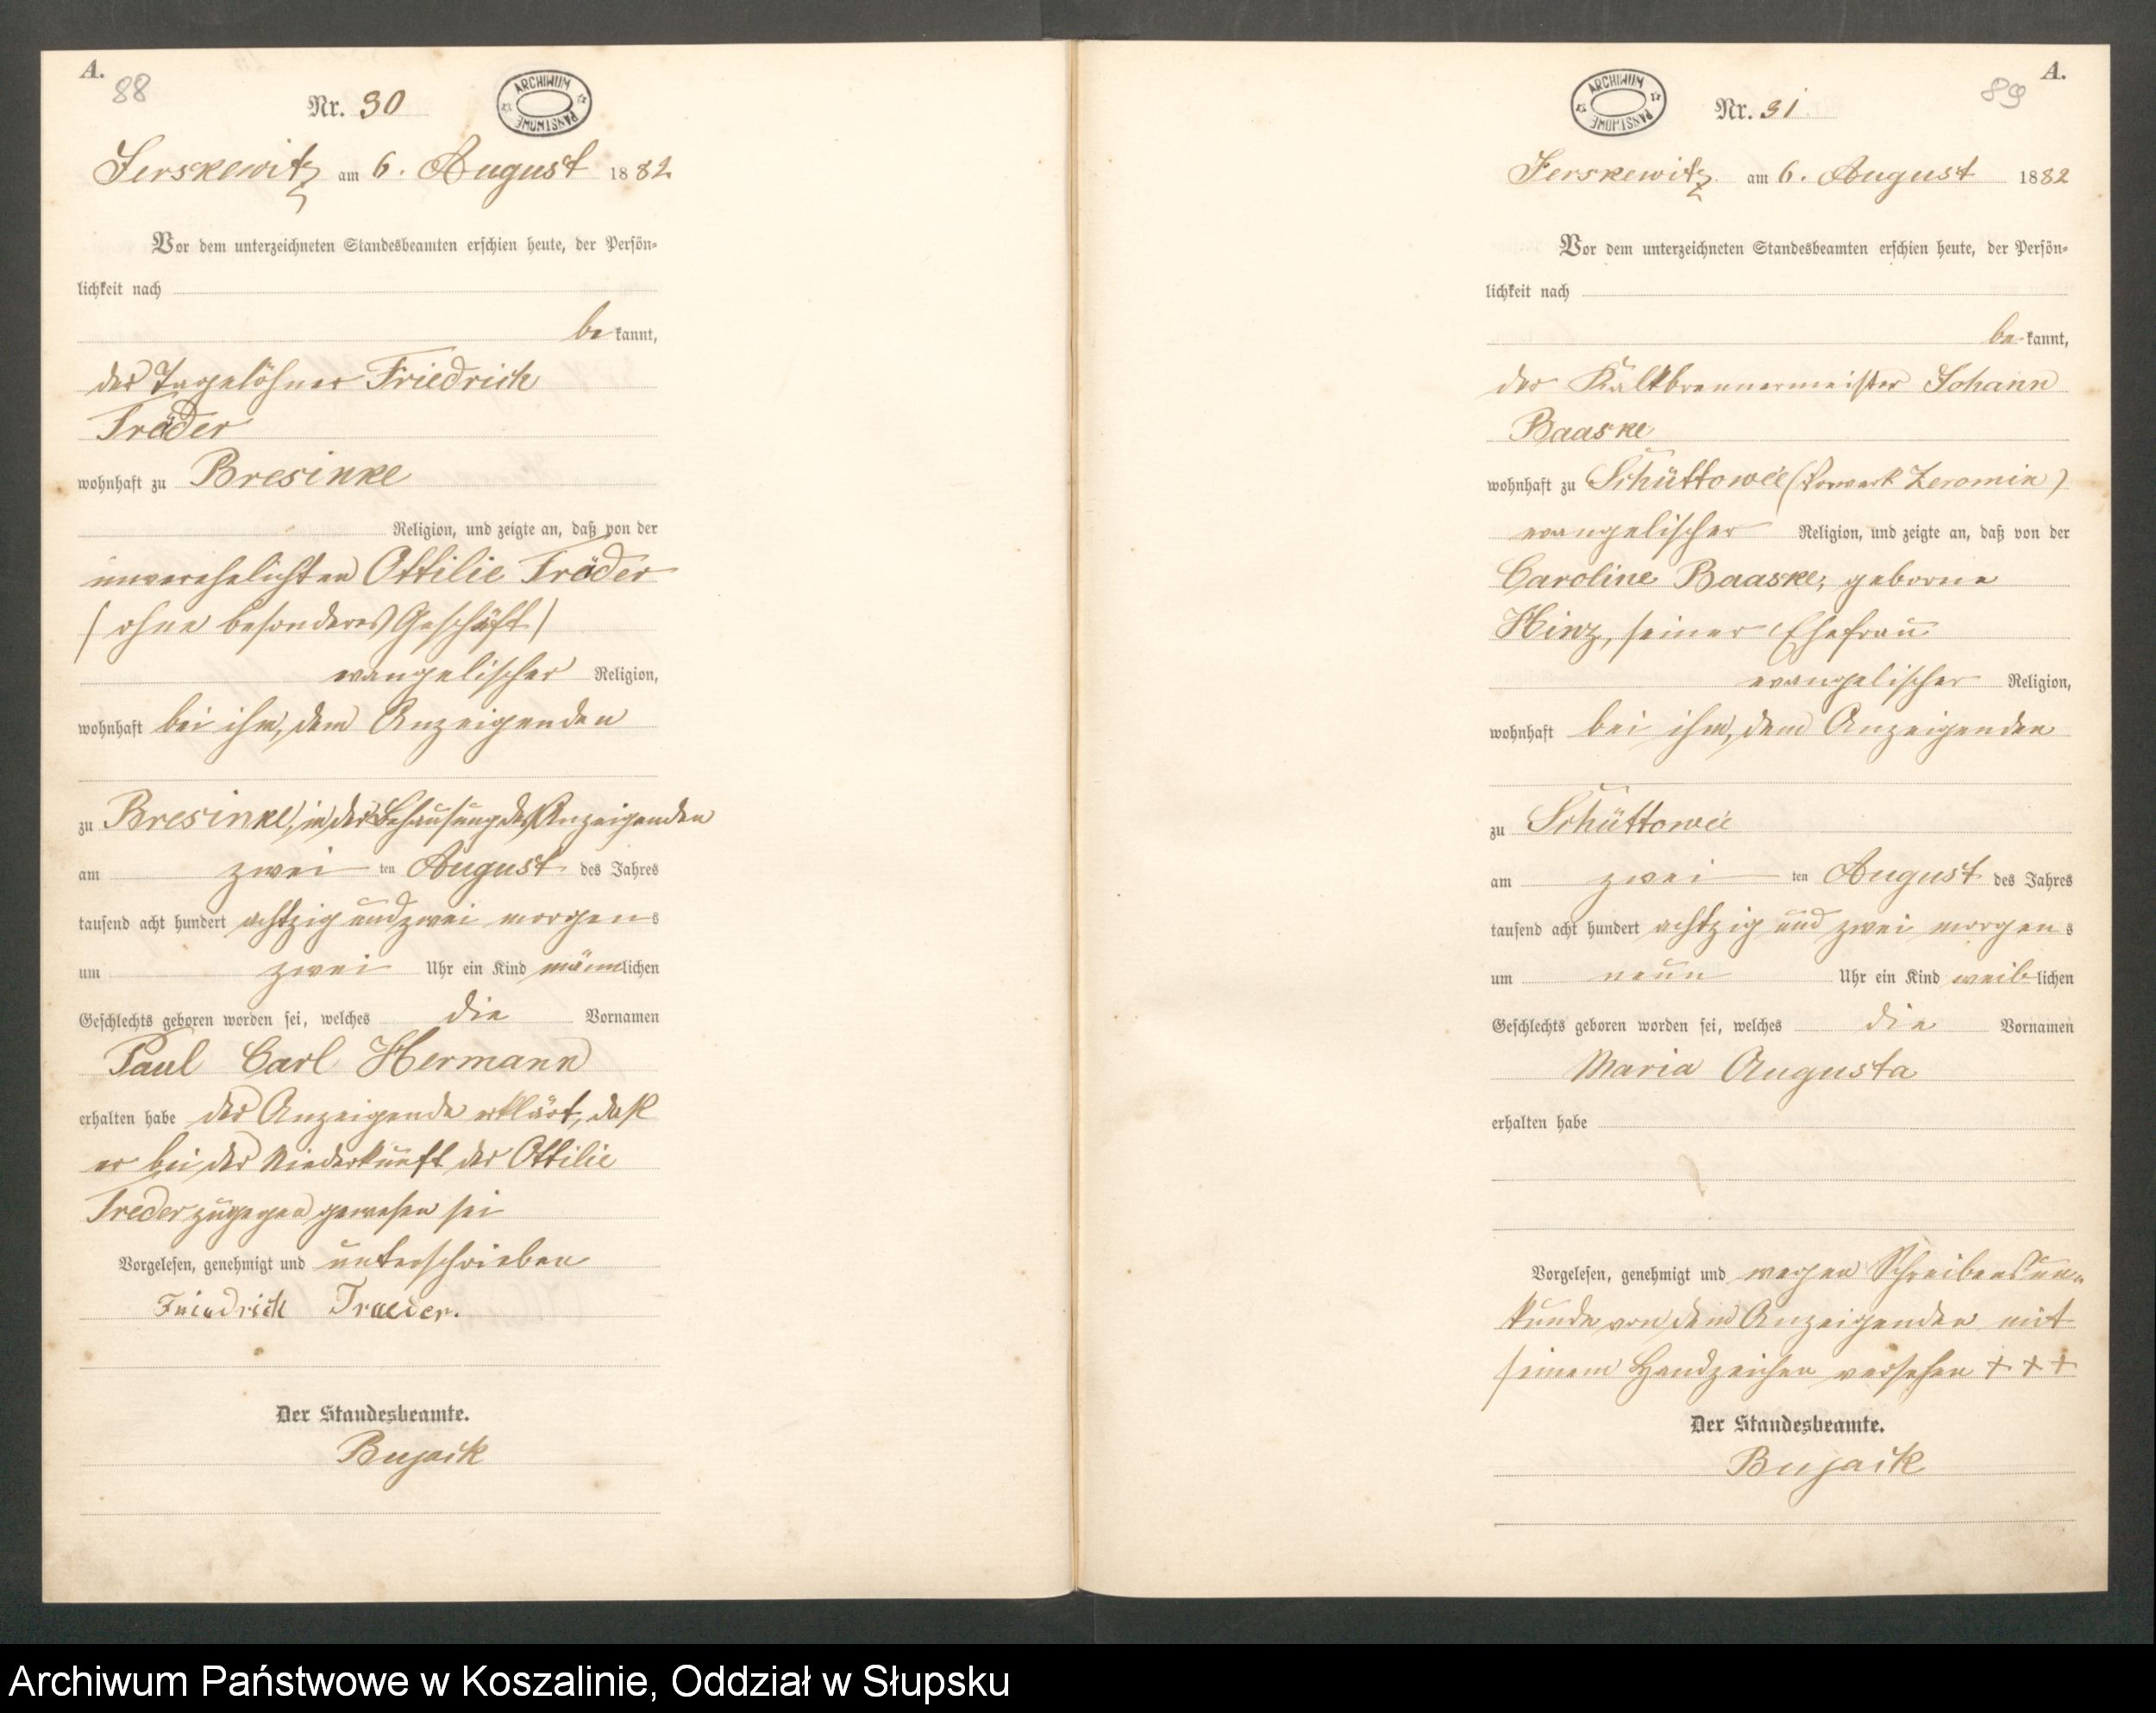 A.
88
Nr. 30
ARCHIWUM PAŃSTWOWE
Jerskewitz am 6. August 1882.
Vor dem unterzeichneten Standesbeamten erschien heute, der Persön-
lichkeit nach
be kannt,
der Tagelöhner Friedrich
Träder
wohnhaft zu Bresinke
Religion, und zeigte an, daß von der
unverehelichten Ottilie Träder
(ohne besonderes Geschäft)
evangelischer Religion,
wohnhaft bei ihm, dem Anzeigenden
zu Bresinke, in der Behausung des Anzeigenden
am zwei ten August des Jahres
tausend acht hundert achtzig und zwei morgens
um zwei Uhr ein Kind männlichen
Geschlechts geboren worden sei, welches die Vornamen
Paul Carl Hermann
erhalten habe der Anzeigende erklärt, daß
er bei der Niederkunft der Ottilie
Treder zugegen gewesen sei
Vorgelesen, genehmigt und unterschrieben
Friedrich Traeder.
Der Standesbeamte.
Bujack
A.
89
ARCHIWUM PAŃSTWOWE
Nr. 31.
Jerskewitz am 6. August 1882
Vor dem unterzeichneten Standesbeamten erschien heute, der Persön-
lichkeit nach
be kannt,
der Kalkbrennermeister Johann
Baaske
wohnhaft zu Schüttow (Vorwerk Zeromin)
evangelischer Religion, und zeigte an, daß von der
Caroline Baaske, geborne
Hinz, seiner Ehefrau
evangelischer Religion,
wohnhaft bei ihm, dem Anzeigenden
zu
am zwei ten August des Jahres
tausend acht hundert achtzig und zwei morgens
um neun Uhr ein Kind weiblichen
Geschlechts geboren worden sei, welches die Vornamen
Maria Augusta
erhalten habe
Vorgelesen, genehmigt und wegen Schreibensun-
kunde von dem Anzeigenden mit
seinem Handzeichen versehen + + +
Der Standesbeamte.
Bujack
Archiwum Państwowe w Koszalinie, Oddział w Słupsku